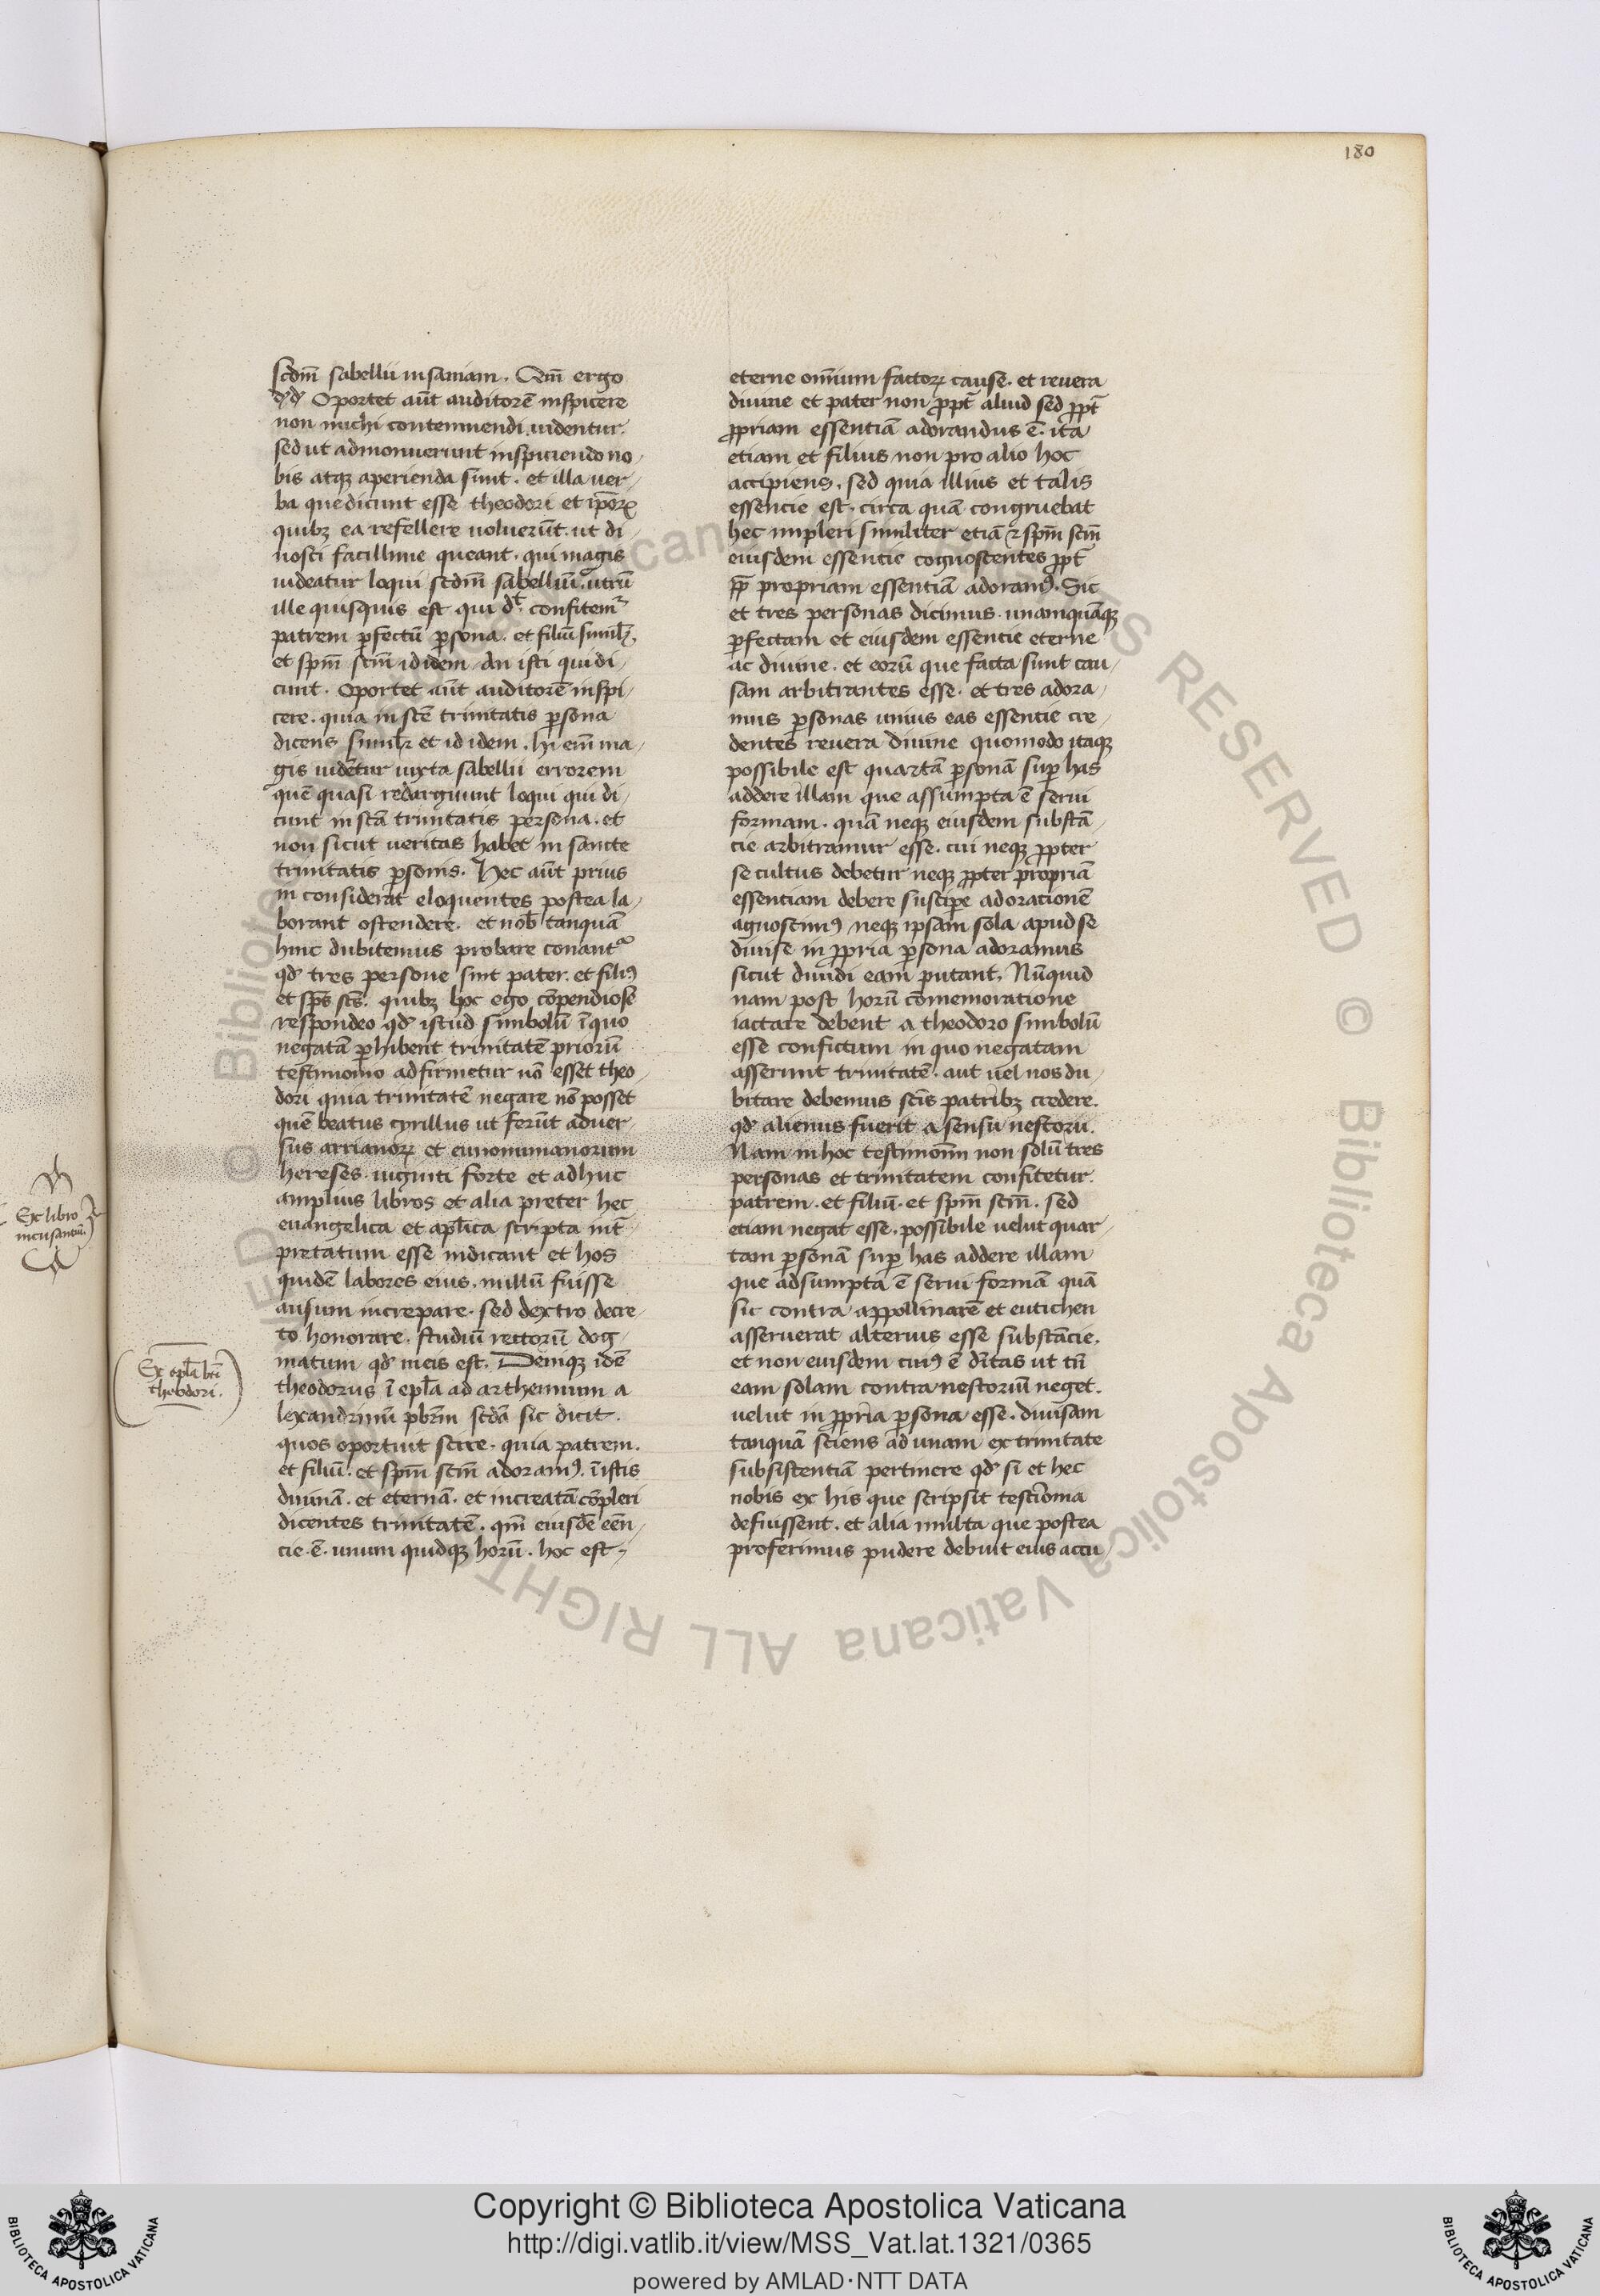 180
scdm̄ sabellii insaniam. Qm̄ ergo
Oportet aūt auditorē inspicere
non michi contemnendi uidentur.
sed ut admonuerunt inspiciendo no-
bis atqȝ aperienda sunt. et illa uer-
ba que dicunt esse theodori et ip̄orꝝ
quibȝ ea refellere uoluerūt. ut di-
nosci facillime queant. qui magis
uideatur loqui scdm̄ sabelliū. utrū
ille quisquis est qui dt̄. confitemr̄
patrem ꝑfectū ꝑsona. et filiū similr̄.
et sp̄m sc̄m id idem. An isti qui di-
cunt. Oportet aūt auditorē inspi-
cere. quia in sc̄e trinitatis ꝑsona
dicens similr̄ et id idem. hi em̄ ma-
gis uidētur iuxta sabellii errorem
quē quasi redarguunt loqui qui di-
cunt in sc̄a trinitatis persona. et
non sicut ueritas habet in sancte
trinitatis ꝑsonis. Hec aūt prius
in considerat eloquentes postea la-
borant ostendere. et nob̄ tanquā
hinc dubitemus probare conantr̄
qd̄ tres persone sint pater. et filiꝰ
et sp̄s sc̄s. quibȝ hoc ego cōpendiose
respondeo qd̄ istud simbolū ī quo
negatā ꝑhibent trinitatē priorū
testimonio adfirmetur nō esset theo-
dori quia trinitatē negare nō posset
quē beatus cyrillus ut ferūt aduer-
sus arrianorꝝ et eunomianorum
hereses. uiginti forte et adhuc
amplius libros et alia preter hec
euangelica et apl̄ica scripta int̄-
pretatum esse indicant et hos
quidē labores eius. nullū fuisse
ausum increpare. sed dextro decre-
to honorare. studiū rectorū dog-
matum qd̄ meis est. Deniqȝ idē
theodorus ī epl̄a ad arthemium a
lexandrinū pb̄rm sc̄da sic dicit.
quos oportuit scire. quia patrem.
et filiū. et sp̄m sc̄m adoramꝰ. ī istis
diuinā. et eternā. et increatā cōpleri
dicentes trinitatē. qm̄ eiusdē eēn-
cie. ē. unum quidqȝ horū. hoc est
Ex libro
incusantiū
Ex epl̄a bt̄i
theodori.
eterne om̄ium factorꝝ cause. et reuera
diuine et pater non ꝓpt̄ aliud sed ꝓpt̄
ꝓpriam essentiā adorandus ē. ita
etiam et filius non pro alio hoc
accipiens. sed quia illius et talis
essencie est. circa quā congruebat
hec impleri similiter etiā ⁊ sp̄m sc̄m
eiusdem essentie cognoscentes ꝓpt̄
propriam essentiā adoramꝰ. Sic
et tres personas dicimus. unamquāqȝ
ꝑfectam et eiusdem essentie eterne
ac diuine. et eorū que facta sunt cau-
sam arbitrantes esse. et tres adora-
mus ꝑsonas unius eas essentie cre-
dentes reuera diuine quomodo itaqȝ
possibile est quartā ꝑsonā suꝑ has
addere illam que assumpta ē serui
formam. quā neqȝ eiusdem substā-
cie arbitramur esse. cui neqȝ ꝓpter
se cultus debetur neqȝ ꝓpter propriā
essentiam debere suscipe adorationē
agnoscimꝰ neqȝ ipsam sola apud se
diuise in ꝓpria ꝑsona adoramus
sicut diuidi eam putant. Nūquid
nam post horū cōmemoratione
iactare debent a theodoro simbolū
esse confictum in quo negatam
asserunt trinitatē. aut uel nos du-
bitare debemus sc̄is patribȝ credere.
qd̄ alienus fuerit a sensu nestorii.
Nam in hoc testimoniū non solū tres
personas et trinitatem confitetur.
patrem. et filiū. et sp̄m sc̄m. sed
etiam negat esse. possibile uelut quar-
tam ꝑsonā suꝑ has addere illam
que adsumpta ē serui formā quā
sic contra appollinarē et eutichen
asseruerat alterius esse substācie.
et non eiusdem cuiꝰ ē dītas ut tn̄
eam solam contra nestoriū neget.
uelut in ꝓpria ꝑsona esse. diuisam
tanquā sciens ad unam ex trinitate
subsistentiā pertinere qd̄ si et hec
nobis ex his que scripsit testīonia
defuissent. et alia multa que postea
proferimus pudere debuit eius accu-
Copyright © Biblioteca Apostolica Vaticana
http://digi.vatlib.it/view/MSS_Vat.lat.1321/0365
powered by AMLAD·NTT DATA
BIBLIOTECA APOSTOLICA VATICANA
BIBLIOTECA APOSTOLICA VATICANA